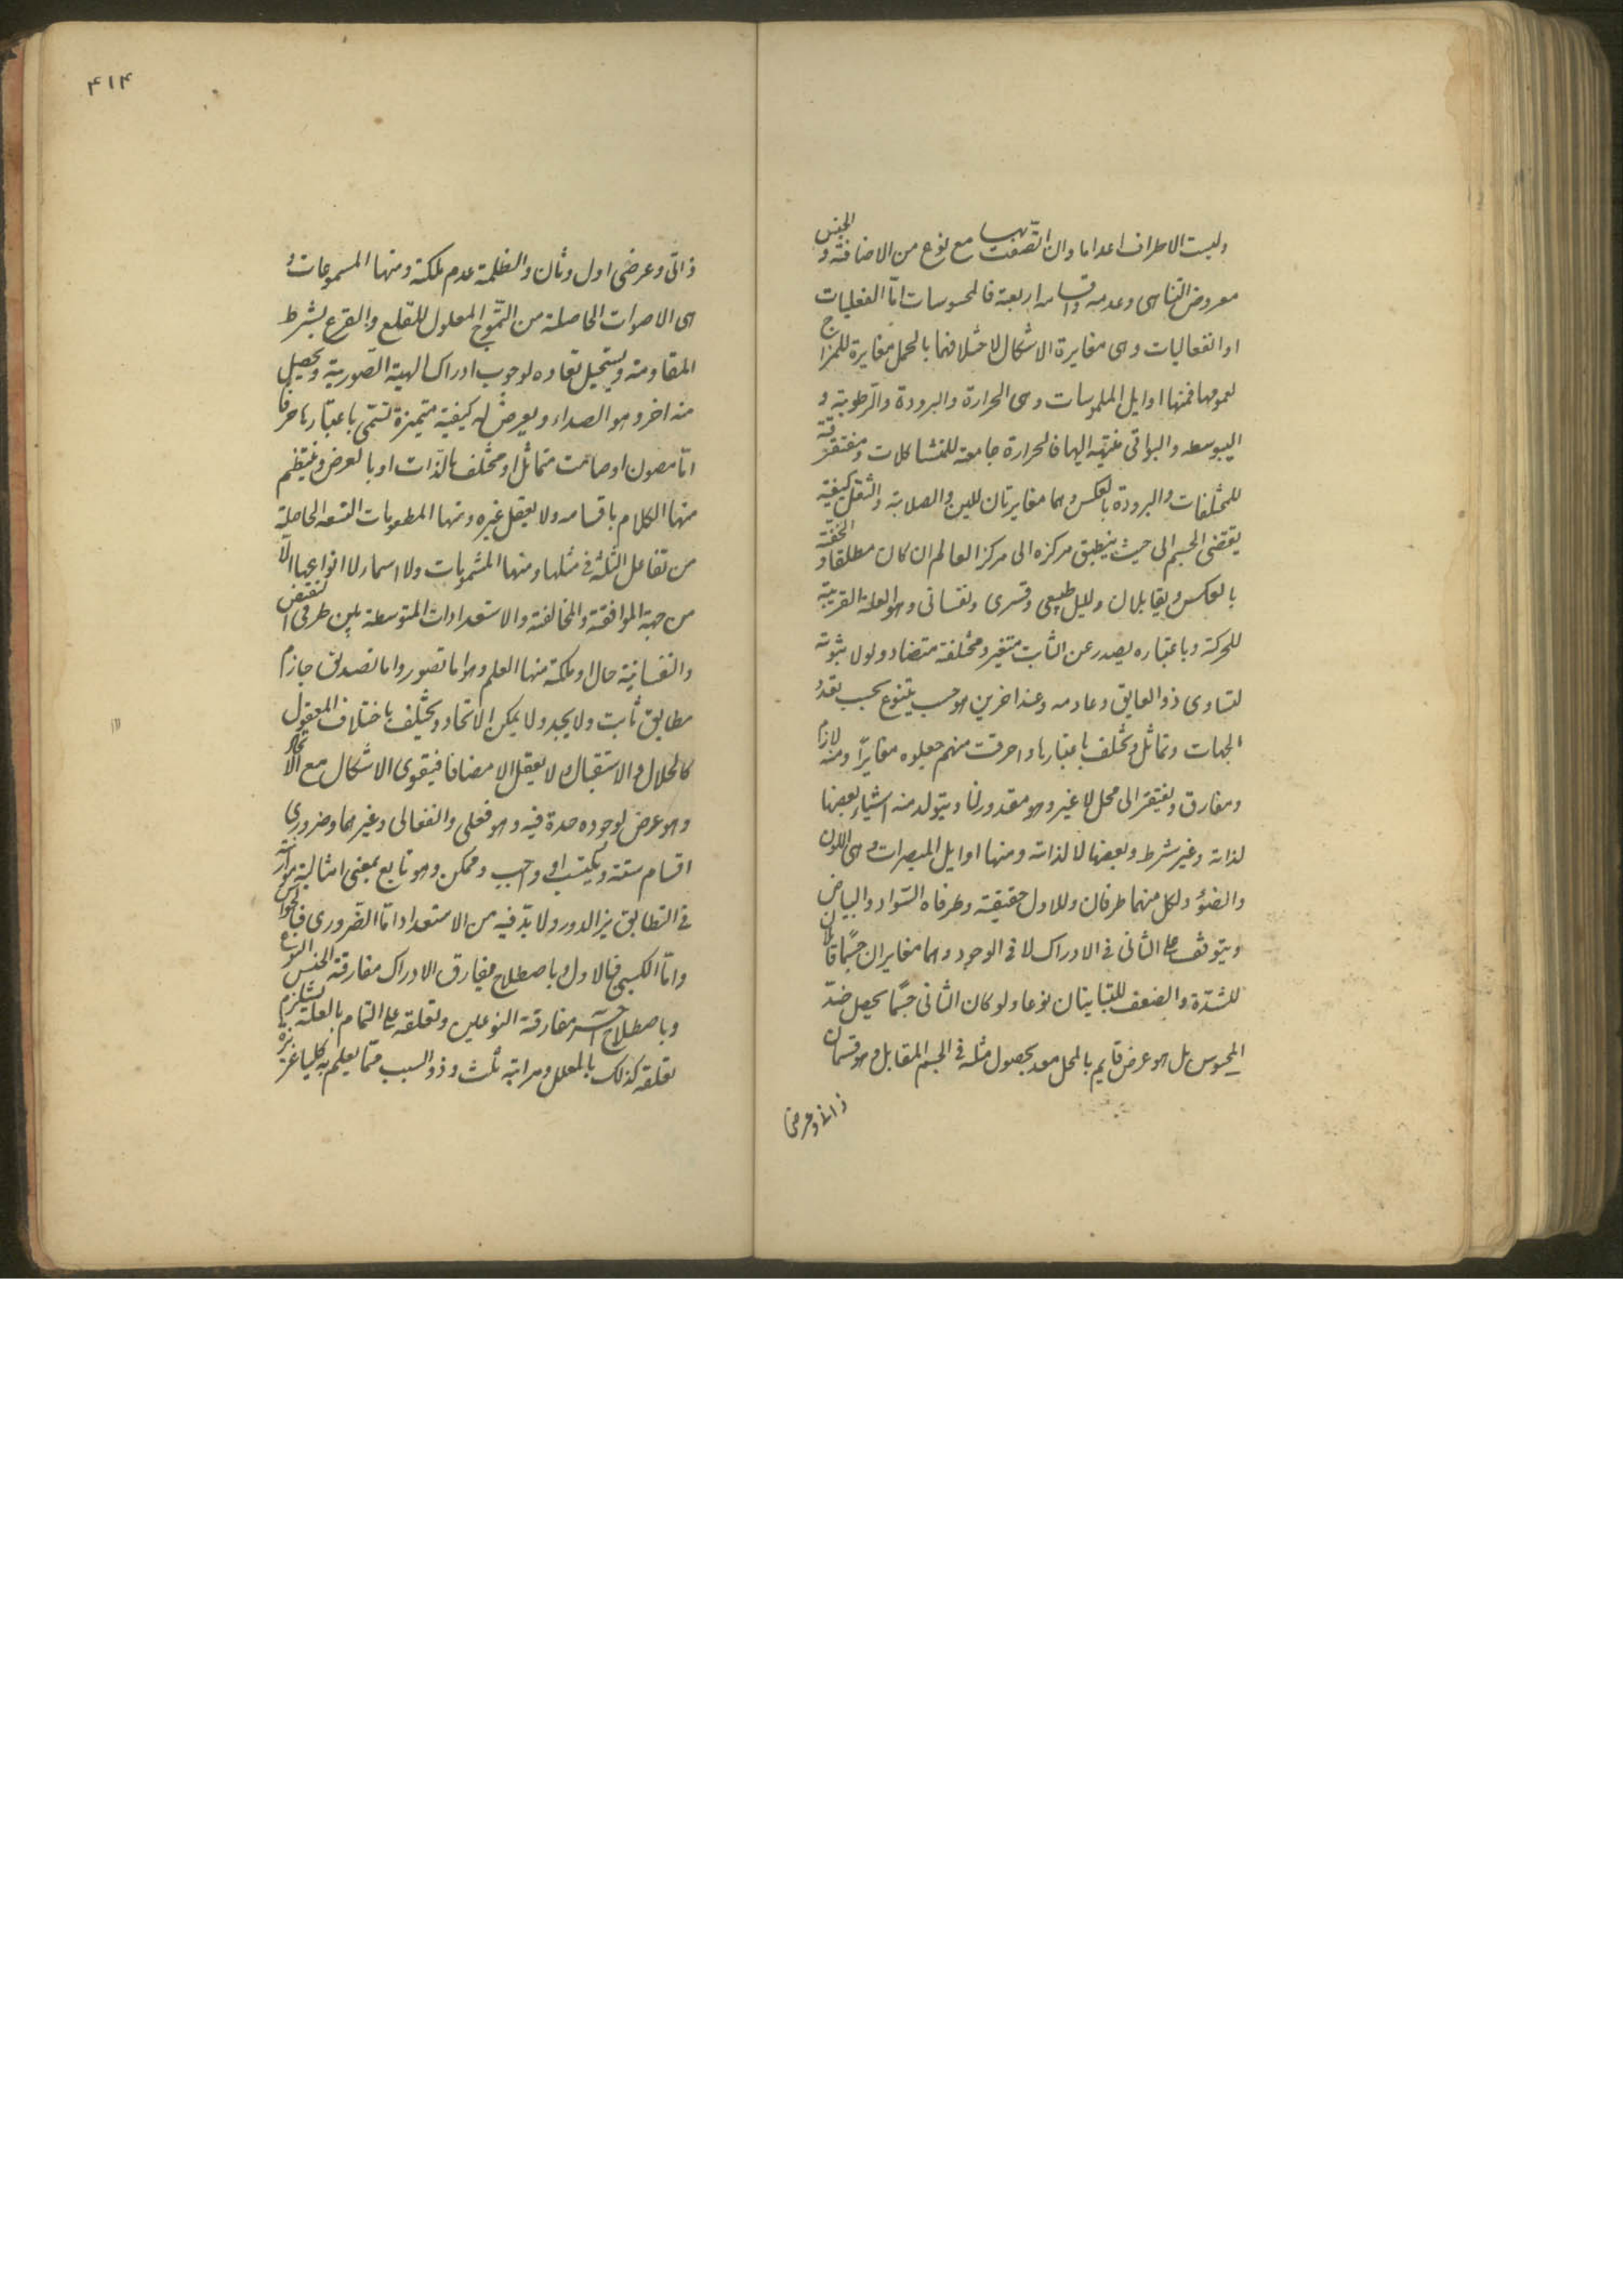 وليست الاطراف اعداما وان اتصفت بها مع نوع من الاضافة و الجنس
معروض التناهى وعدمه واقسامه اربعة فالمحسوسات اما انفعليات
او انفعاليات وهى مغايرة الاشكال لاختلافهما بالحمل مغايرة للمزاج
لعمومها فمنها اوايل الملموسات وهى الحرارة والبرودة والرطوبة و
اليبوسه والبواقى منتهية اليها فالحرارة جامعة للمتشاكلات ومفرقة
للمختلفات والبرودة بالعكس وهما مغايرتان للين والصلابة والثقل كيفية
يقتضى الجسم الى حيث ينطبق مركزه الى مركز العالم ان كان مطلقا و الخفة
بالعكس ويقابلان والميل طبيعى وقسرى ونفسانى وهو العلة القريبة
للحركة وباعتباره يصدر عن الثابت متغير ومختلفة متضاد ولولا ثبوته
لتساوى ذو العايق وعادمه وعند اخرين هو جنس يتنوع بحسب تعدد
الجهات وتماثل وتختلف باعتبارها واخرقت منهم جعلوه مغايرا ومنه لازم
ومفارق ويفتقر الى محل لا غير وهو مقدور لنا ويتولد منه اشياء بعضها
لذاته وغير شرط وبعضها لا لذاته ومنها اوايل المبصرات وهى اللون
والضوء ولكل منهما طرفان وللاول حقيقة وطرفاه السواد والبياض
ويتوقف على الثانى فى الادراك لا فى الوجود وهما مغايران حسا قابلان
للشدة والضعف للتباينان نوعا ولو كان الثانى جسما يحصل ضد
المحسوس بل هو عرض قايم بالمحل معد بحصول مثله فى الجسم المقابل وهو قسمان
ذاتى وعرضى
۴۱۴
ذاتى وعرضى اول وثان والظلمة عدم ملكة ومنها المسموعات و
هى الاصوات الحاصلة من التموج المعلول للقلع والقرع بشرط
المقاومة ويستحيل بقاوه لوجوب ادراك الهيئة الصورية ويحصل
منه اخر وهو الصداء ويعرض له كيفية متميزة تسمى باعتبارها حرفا
اما مصون او صامت متماثل او مختلف بالذات او بالعرض وينتظم
منها الكلام باقسامه ولا يعقل غيره ومنها المطعومات التسعه الحاصلة
من تفاعل الثلثة فى مثلها ومنها المشمومات ولا اسماء لانواعها الا
من جهة الموافقة والمخالفة والاستعدادات المتوسطة بين طرفى النقيض
والنفسانية حال او ملكة منها العلم وهو اما تصور واما تصديق جازم
مطابق ثابت ولا يحد ولا يمكن الاتحاد ويختلف باختلاف المعقول
كالحلال والاستقبال ولا يعقل الا مضافا فيقوى الاشكال مع الاتحاد
وهو عرض لوجود حده فيه وهو فعلى وانفعالى وغيرهما وضرورى
اقسام ستة ومكتسب او واجب وممكن وهو تابع بمعنى اصالة موازنه
فى التطابق يزال الدور ولا بد فيه من الاستعداد اما الضرورى فبالحواس
واما الكسبى فبالاول وباصطلاح يفارق الادراك مفارقة الجنس النوع
وباصطلاح آخر مفارقة النوعين وتعلقه على التمام بالعلة يستلزم
تعلقه كذلك بالمعلل ومراتبه ثلث وذو السبب فمما يعلم به كليا